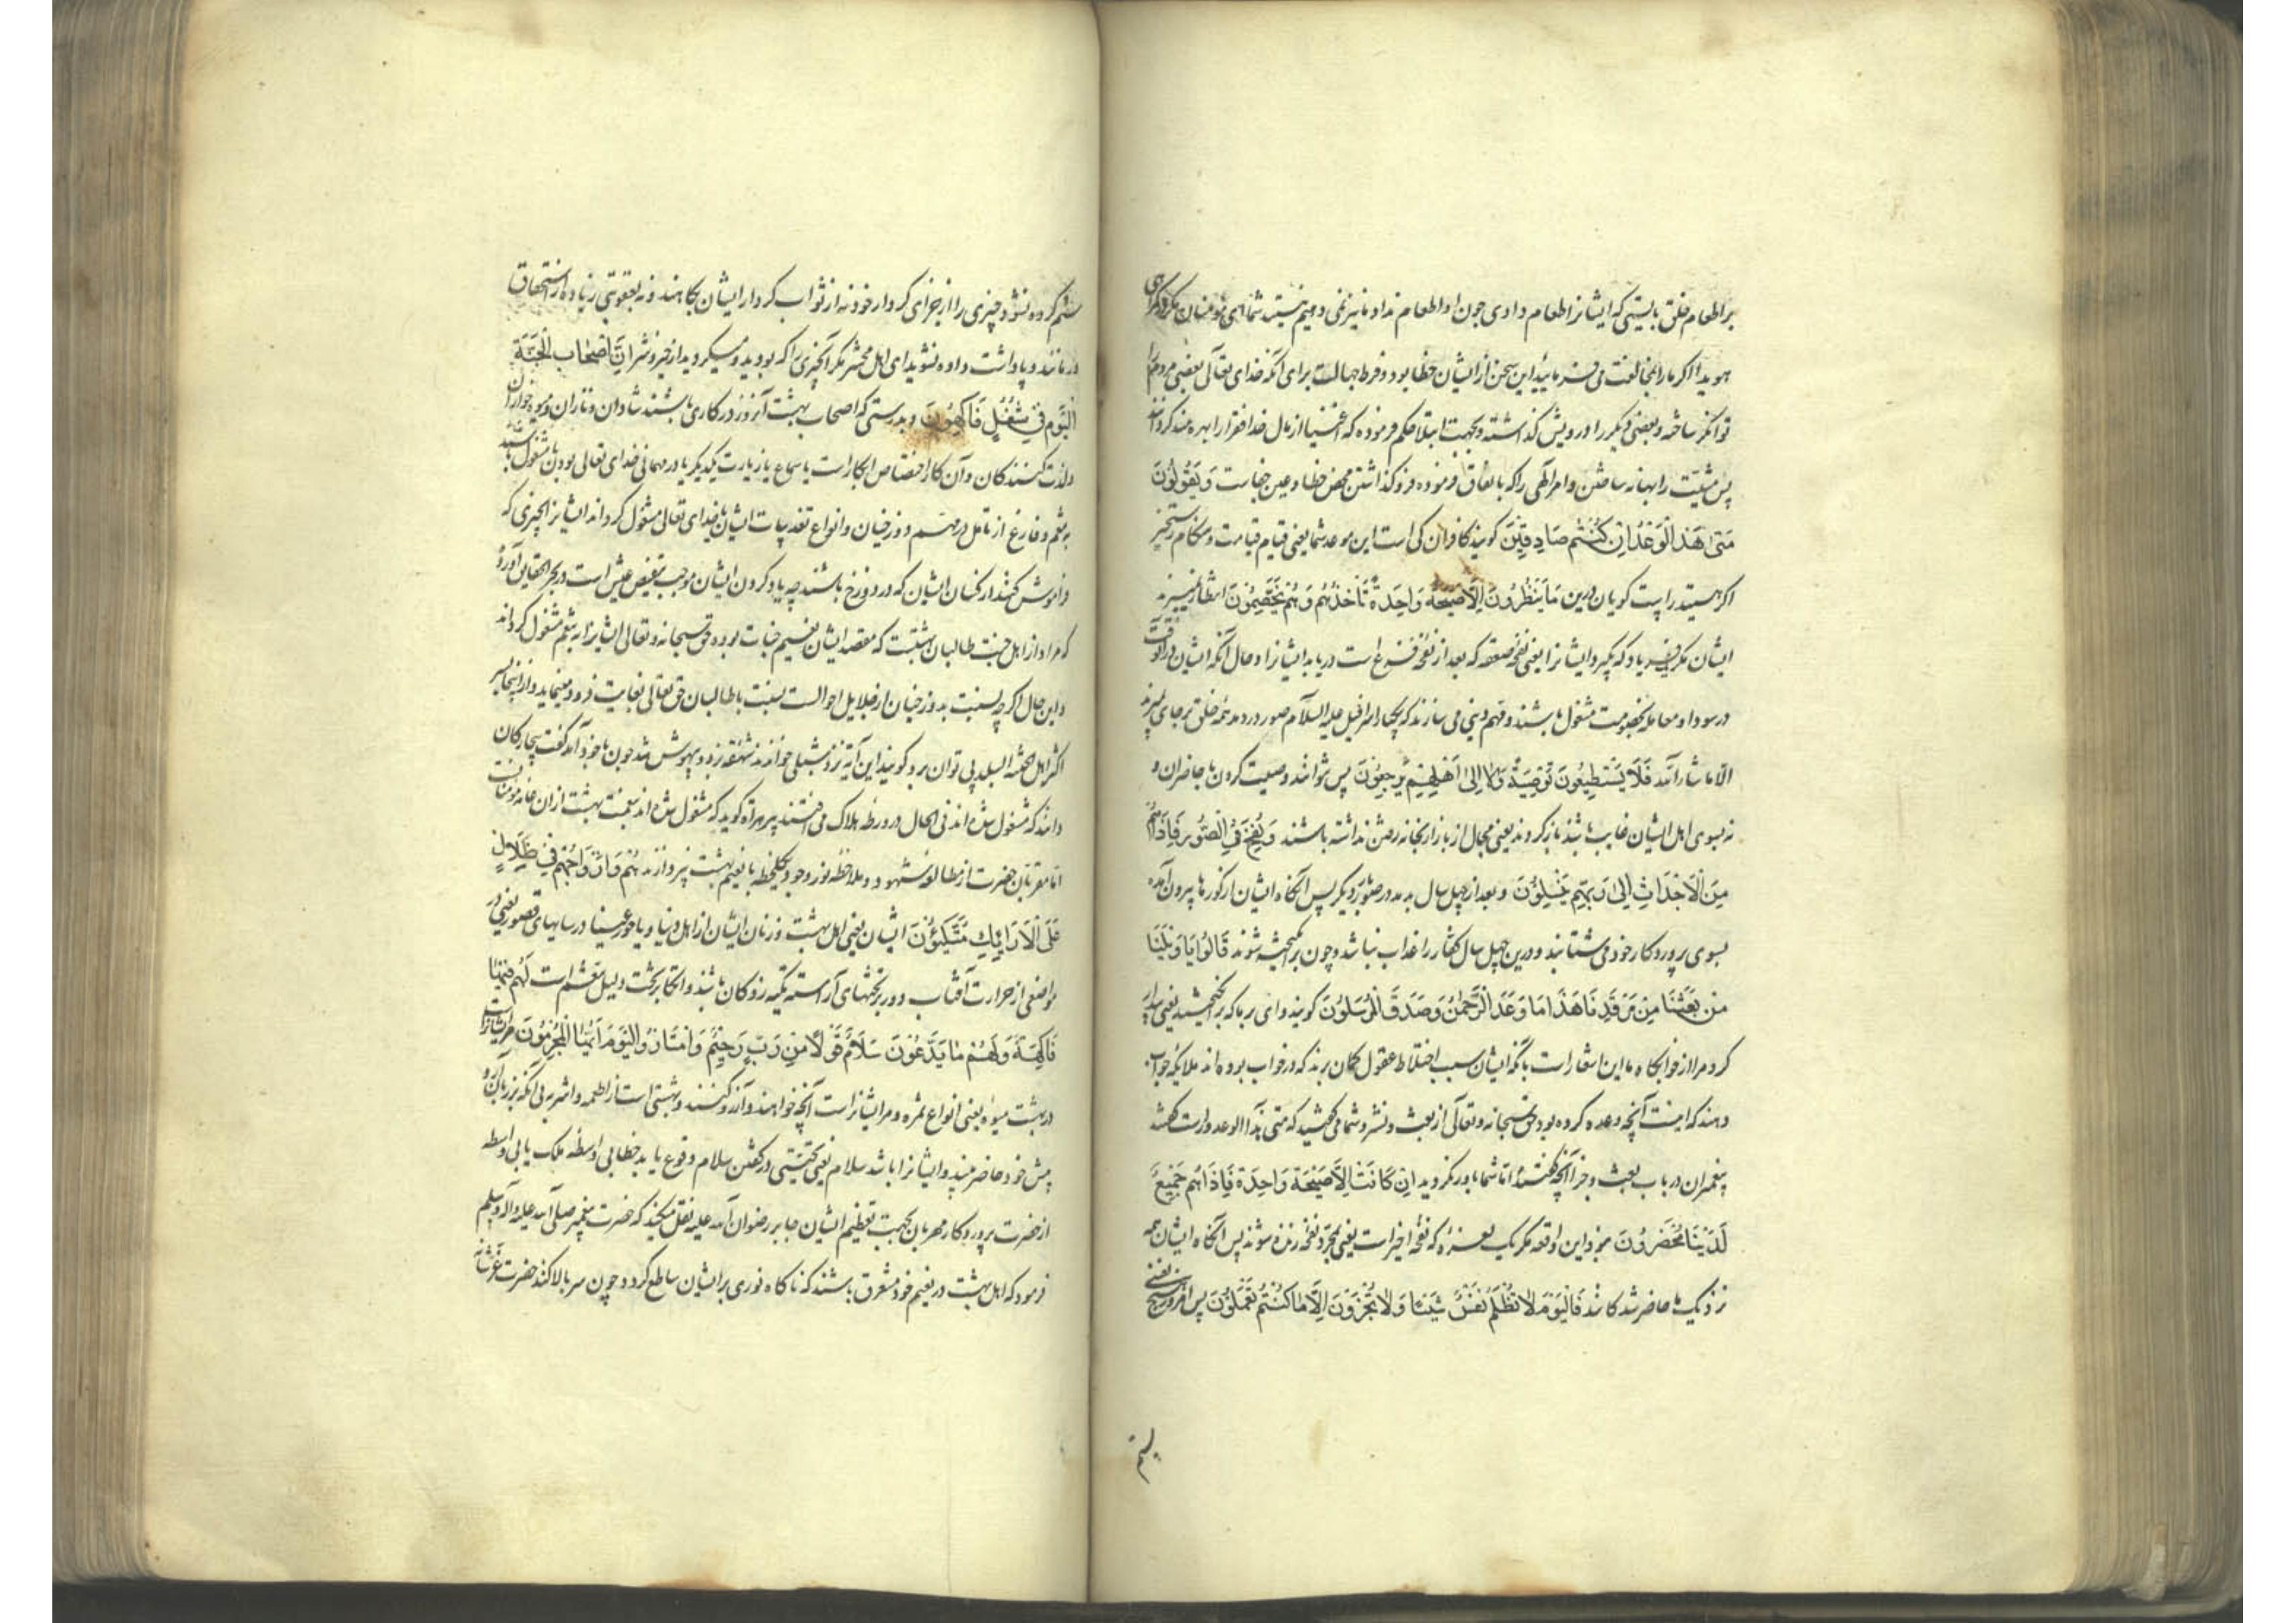 بر اطعام خلق بایستی که ایشانرا طعام دادی چون او اطعام نداد ما نیز نمی دهیم نیستید شما ای مؤمنان مگر در گمراهی
هویدا اگر ما را بمخالفت می فرمایید این سخن از ایشان خطا بود و فرط جهالت برای آنکه خدای تعالی بعضی مردم را
توانگر ساخته و بعضی دیگر را درویش گذاشته و بجهت ابتلا حکم فرموده که اغنیا از مال خدا فقرا را بهره مند گردانند
پس مشیت را بهانه ساختن و امر الهی را که بانفاق فرموده فرو گذاشتن محض خطا و عین جفاست وَيَقُولُونَ
مَتٰى هٰذَا الْوَعْدُ اِنْ كُنْتُمْ صَادِقِينَ گویند کافران کی است این موعد شما یعنی قیام قیامت و هنگام رستخیز
اگر هستید راست گویان درین مَا يَنْظُرُونَ اِلَّا صَيْحَةً وَاحِدَةً تَأْخُذُهُمْ وَهُمْ يَخِصِّمُونَ انتظار نمیبرند
ایشان مگر یک فریاد که بگیرد ایشانرا یعنی نفخه صعقه که بعد از نفخه فزع است دریابد ایشانرا و حال آنکه ایشان در آنوقت
در سودا و معامله بخصومت مشغول باشند و مهم دینی می سازند که یکبار اسرافیل علیه السلام صور در دمد همه خلق بر جای بمیرند
الّا ما شاء الله فَلَا يَسْتَطِيعُونَ تَوْصِيَةً وَلَا اِلٰى اَهْلِهِمْ يَرْجِعُونَ پس نتوانند وصیت کردن با حاضران و
نه بسوی اهل ایشان غایب باشند باز گردند یعنی مجال از بازار بخانه رفتن نداشته باشند وَنُفِخَ فِي الصُّورِ فَاِذَا هُمْ
مِنَ الْاَجْدَاثِ اِلٰى رَبِّهِمْ يَنْسِلُونَ و بعد از چهل سال بدمد در صور دیگر پس آنگاه ایشان از گورها بیرون آمده
بسوی پروردگار خود می شتابند و درین چهل سال کفار را عذاب نباشد و چون برانگیخته شوند قَالُوا يَا وَيْلَنَا
مَنْ بَعَثَنَا مِنْ مَرْقَدِنَا هٰذَا مَا وَعَدَ الرَّحْمٰنُ وَصَدَقَ الْمُرْسَلُونَ گویند وای بر ما که برانگیخت یعنی بیدار
کرد مرا از خوابگاه ما این اشعار است بآنکه ایشان بسبب اختلاط عقول گمان برند که در خواب بوده اند ملایکه جواب
دهند که اینست آنچه وعده کرده بود حق سبحانه و تعالی از بعث و نشر و شما می گفتید که متی هذا الوعد و راست گفتند
پیغمبران در باب بعث و جزا آنچه گفتند اما شما باور نکردید اِنْ كَانَتْ اِلَّا صَيْحَةً وَاحِدَةً فَاِذَا هُمْ جَمِيعٌ
لَدَيْنَا مُحْضَرُونَ نبود این واقعه مگر یک نعره که نفخه اخیر است یعنی بمجرد نفخه زنده شوند پس آنگاه ایشان همه
نزدیک ما حاضر شدگانند فَالْيَوْمَ لَا تُظْلَمُ نَفْسٌ شَيْئًا وَلَا تُجْزَوْنَ اِلَّا مَا كُنْتُمْ تَعْمَلُونَ پس امروز هیچ نفسی
ستم
ستم کرده نشود چیزی را از جزای کردار خود نه از ثواب کردار ایشان بکاهند و نه بعقوبتی زیاده از استحقاق
در مانند و پاداشت داده نشوید ای اهل محشر مگر آنچیزی را که بودید و میکردید از خیر و شر اِنَّ اَصْحَابَ الْجَنَّةِ
الْيَوْمَ فِي شُغُلٍ فَاكِهُونَ و بدرستی که اصحاب بهشت آنروز در کاری باشند شادان و نازان و میوه خواران
و لذت کنندگان و آن کار افتضاض ابکار است یا سماع یا زیارت یکدیگر یا در مهمانی خدای تعالی بودن یا مشغول باشند
به نعم و فارغ از تامل در مهم دوزخیان و انواع تعذیبات ایشان یا خدای تعالی مشغول گرداند ایشانرا بچیزی که
فراموش کنند از کسان ایشان که در دوزخ باشند چه یاد کردن ایشان موجب تنغیص عیش است در بحر الحقایق آورده
که مراد از اهل جنت طالبان بهشتند که مقصد ایشان نعیم جنات بوده حق سبحانه و تعالی ایشانرا به تنعم مشغول گرداند
و این حال اگر چه بنسبت بدوزخیان از جلایل احوالست بنسبت با طالبان حق تعالی بغایت فرود مینماید و از اینجا سر
اکثر اهل الجنة البله پی توان برد گویند این آیه نزد شبلی خواندند شهقه زد و بیهوش شد چون با خود آمد گفت بیچارگان
دانند که مشغول شده اند فی الحال در ورطه هلاک می افتند پیر هرات گوید که مشغول شده اند بنعمت بهشت از آن عامه مؤمنانست
اما مقربان حضرت از مطالعه شهود و ملاحظه نور وجود یک لحظه با نعیم بهشت نپردازند هُمْ وَاَزْوَاجُهُمْ فِي ظِلَالٍ
عَلَى الْاَرَائِكِ مُتَّكِئُونَ ایشان یعنی اهل بهشت و زنان ایشان از اهل دنیا و یا حور عین در سایهای قصور یعنی در
مواضعی از حرارت آفتاب دور بر تختهای آراسته تکیه زدگان باشند و اتکا بر تخت دلیل تنعم است لَهُمْ فِيهَا
فَاكِهَةٌ وَلَهُمْ مَا يَدَّعُونَ سَلَامٌ قَوْلًا مِنْ رَبٍّ رَحِيمٍ وَامْتَازُوا الْيَوْمَ اَيُّهَا الْمُجْرِمُونَ مر ایشانراست
در بهشت میوه یعنی انواع ثمره و مر ایشانراست آنچه خواهند و آرزو کنند و بهشتی است از اطعمه و اشربه بی آنکه بزبان آرند
پیش خود حاضر بینند و ایشانرا باشد سلام یعنی تحیتی در گفتن سلام وقوع یابد خطابی بواسطه ملک یا بی واسطه
از حضرت پروردگار مهربان بجهت تعظیم ایشان جابر رضوان الله علیه نقل میکند که حضرت پیغمبر صلی الله علیه و آله و سلم
فرمود که اهل بهشت در نعیم خود مستغرق باشند که ناگاه نوری بر ایشان ساطع گردد چون سر بالا کنند حضرت عز شانه